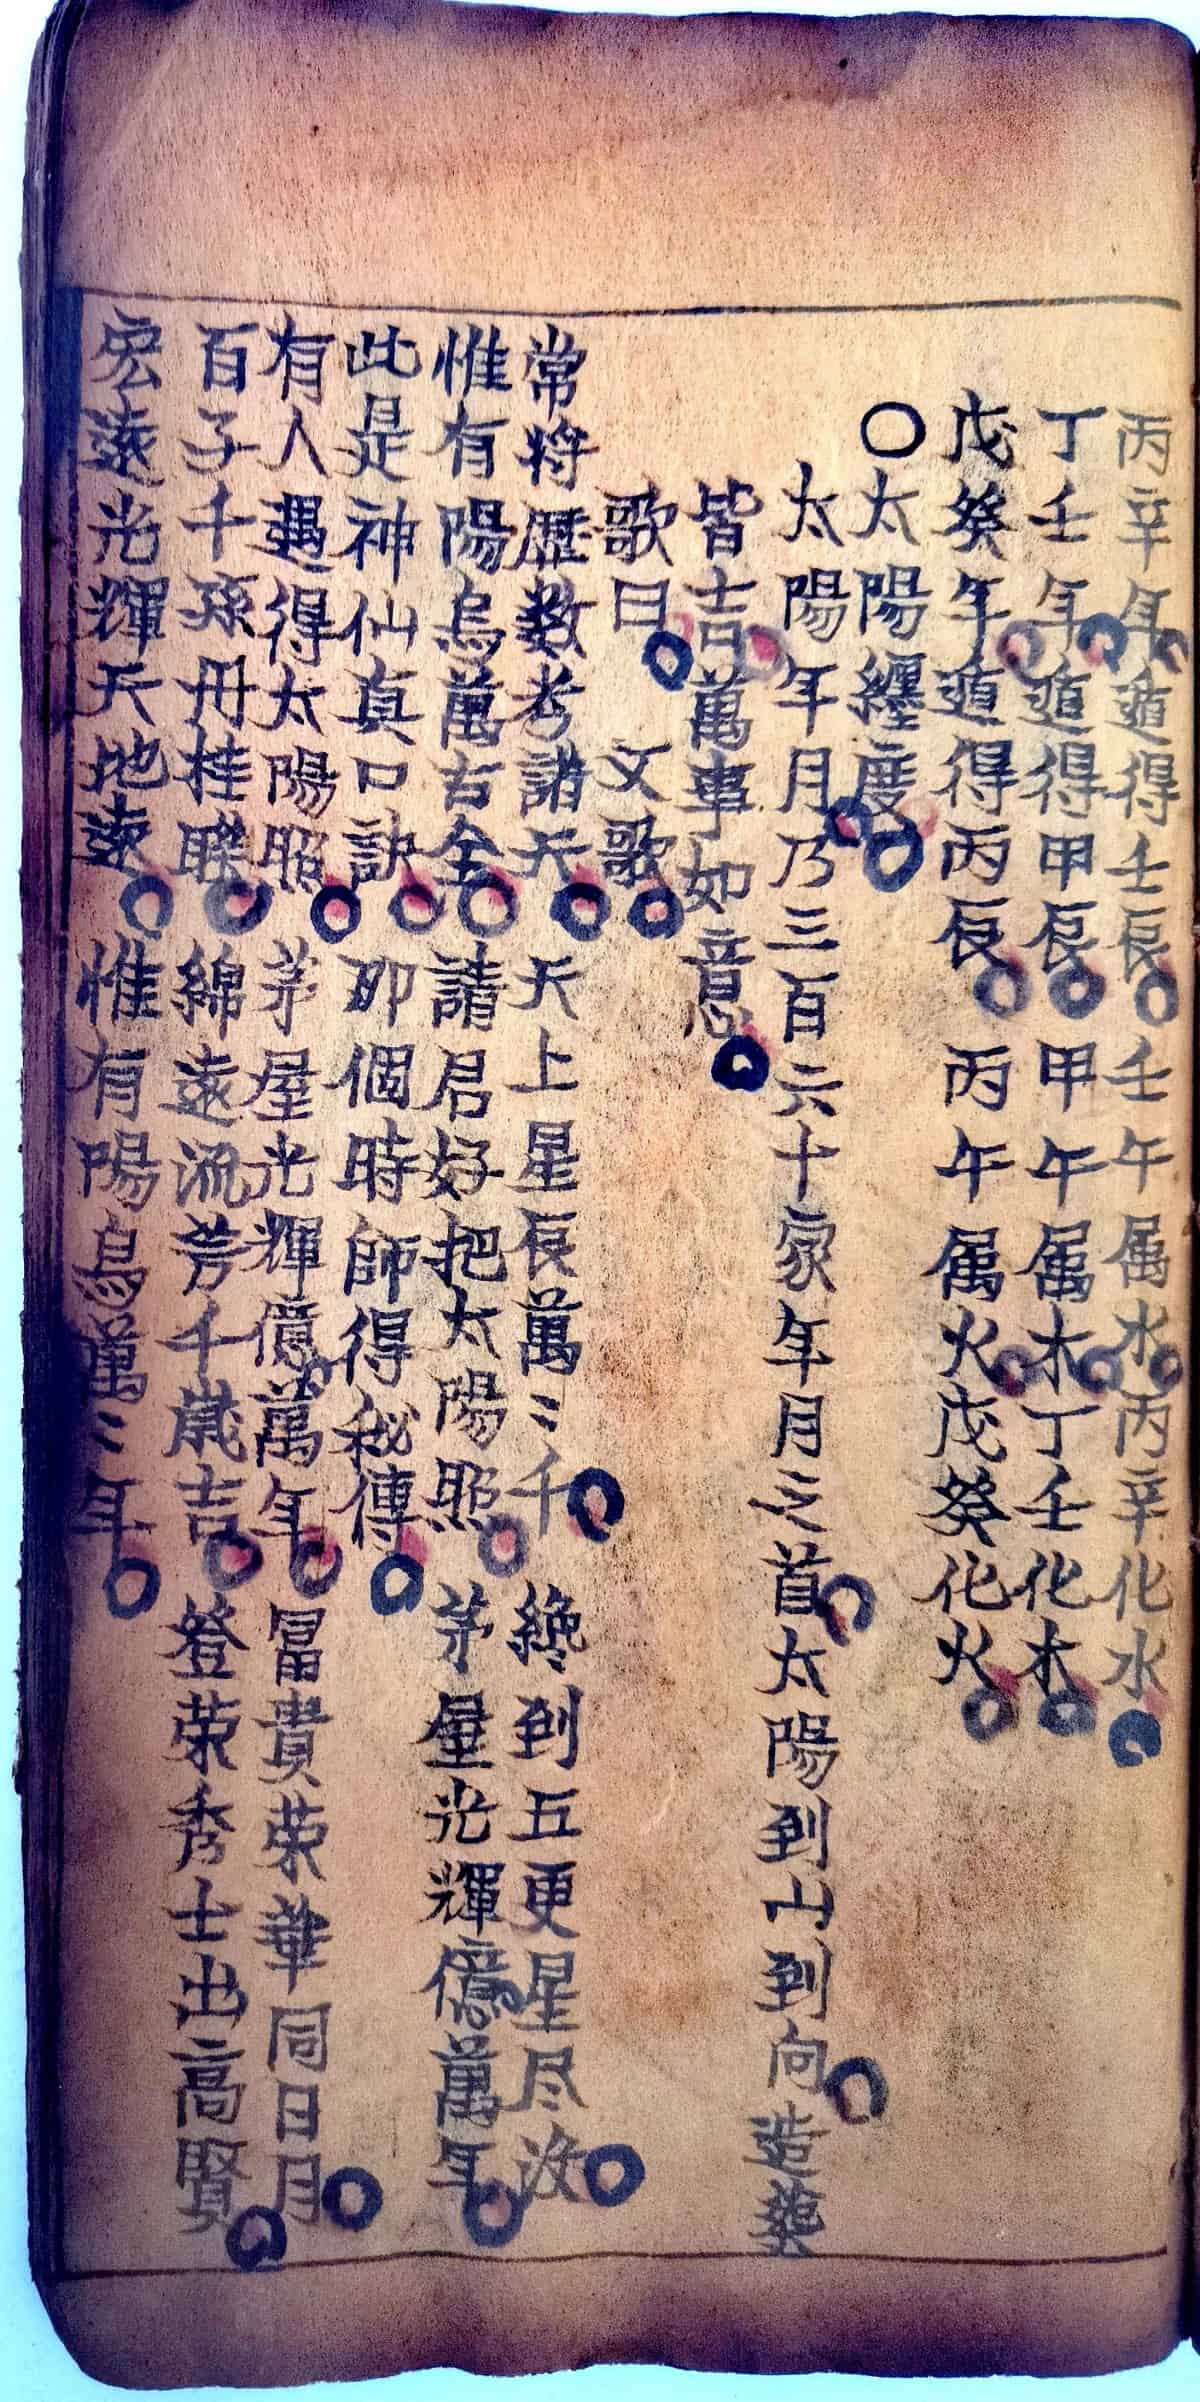 丙辛年遁得壬辰壬午属水丙辛化水
丁壬年遁得甲辰甲午属木丁壬化木
戊癸年遁得丙辰丙午属火戊癸化火
〇太陽纏度
太陽年月乃三百六十家年月之首太陽到山到向造葬
皆吉萬事如意
歌曰 文歌
常将歷数考諸天 天上星辰萬〻千 繞到五更星尽沒
惟有陽烏萬古全 請君好把太陽照 茅屋光輝億萬年
此是神仙真口訣 那個時師得秘傳
有人遇得太陽照 茅屋光輝億萬年 冨貴荣華同日月
百子千孫丹桂聯 綿遠流芳千歲吉 登荣秀士出高賢
宏遠光輝天地遠 惟有陽烏萬〻年